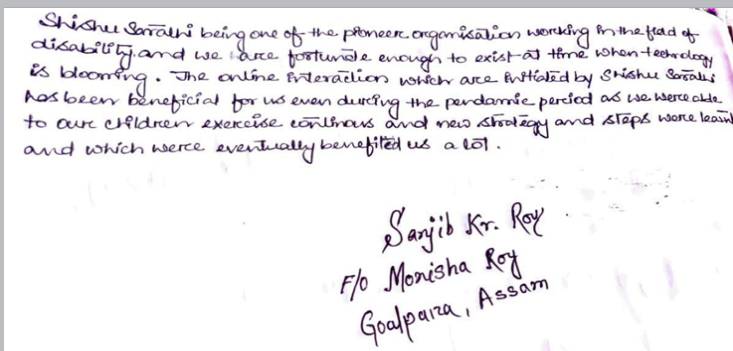 Shishu Sarathi being one of the pioneer organisation working in the field of
disability. and we are fortunate enough to exist at time when technology
is blooming. The online interaction which are initiated by Shishu Sarathi
has been beneficial for us even during the pandamic period as we were able
to our children exercise continous and new strategy and steps were learn
and which were eventually benefited us a lot.
Sanjib Kr. Roy
F/o Monisha Roy
Goalpara, Assam